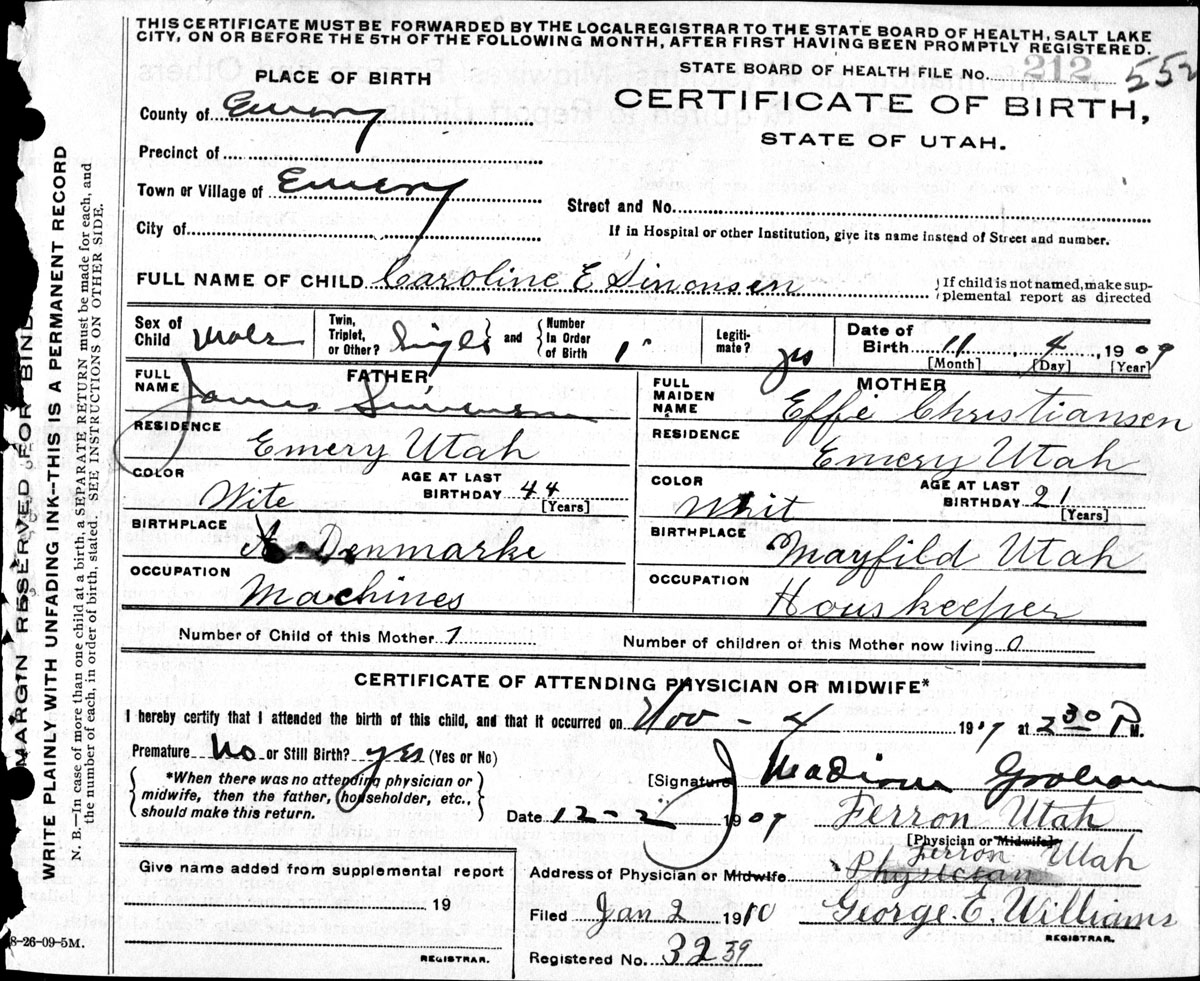 THIS CERTIFICATE MUST BE FORWARDED BY THE LOCAL REGISTRAR TO THE STATE BOARD OF HEALTH, SALT LAKE
CITY, ON OR BEFORE THE 5TH OF THE FOLLOWING MONTH, AFTER FIRST HAVING BEEN PROMPTLY REGISTERED.
PLACE OF BIRTH
STATE BOARD OF HEALTH FILE No. 212 552
County of Emery
CERTIFICATE OF BIRTH,
STATE OF UTAH.
Precinct of
Town or Village of Emery
Street and No.
City of
If in Hospital or other Institution, give its name instead of Street and number.
FULL NAME OF CHILD Caroline E Simonsen
If child is not named, make sup-
plemental report as directed
Sex of Child Male
Twin, Triplet, or Other? Single and
Number In Order of Birth 1
Legiti-mate? yes
Date of Birth 11, 4, 1909
[Month] [Day] [Year]
FATHER
FULL NAME James Simonsen
RESIDENCE Emery Utah
COLOR Wite
AGE AT LAST BIRTHDAY 44
[Years]
BIRTHPLACE Denmarke
OCCUPATION Machines
MOTHER
FULL MAIDEN NAME Effie Christiansen
RESIDENCE Emery Utah
COLOR Whit
AGE AT LAST BIRTHDAY 21
[Years]
BIRTHPLACE Mayfild Utah
OCCUPATION Houskeeper
Number of Child of this Mother 1
Number of children of this Mother now living 0
CERTIFICATE OF ATTENDING PHYSICIAN OR MIDWIFE*
I hereby certify that I attended the birth of this child, and that it occurred on Nov - 4 1909 at 2 30 P M.
Premature No or Still Birth? yes (Yes or No)
*When there was no attending physician or
midwife, then the father, householder, etc.,
should make this return.
[Signature]
Date 12-2 1909
Ferron Utah
[Physician or Midwife]
Ferron Utah
Address of Physician or Midwife Physician
Give name added from supplemental report
19
REGISTRAR.
Filed Jan 2 1910 George E. Williams
REGISTRAR.
Registered No. 32 39
8-26-09-5M.
MARGIN RESERVED FOR BIND
WRITE PLAINLY WITH UNFADING INK--THIS IS A PERMANENT RECORD
N. B.—In case of more than one child at a birth, a SEPARATE RETURN must be made for each, and
the number of each, in order of birth, stated. SEE INSTRUCTIONS ON OTHER SIDE.